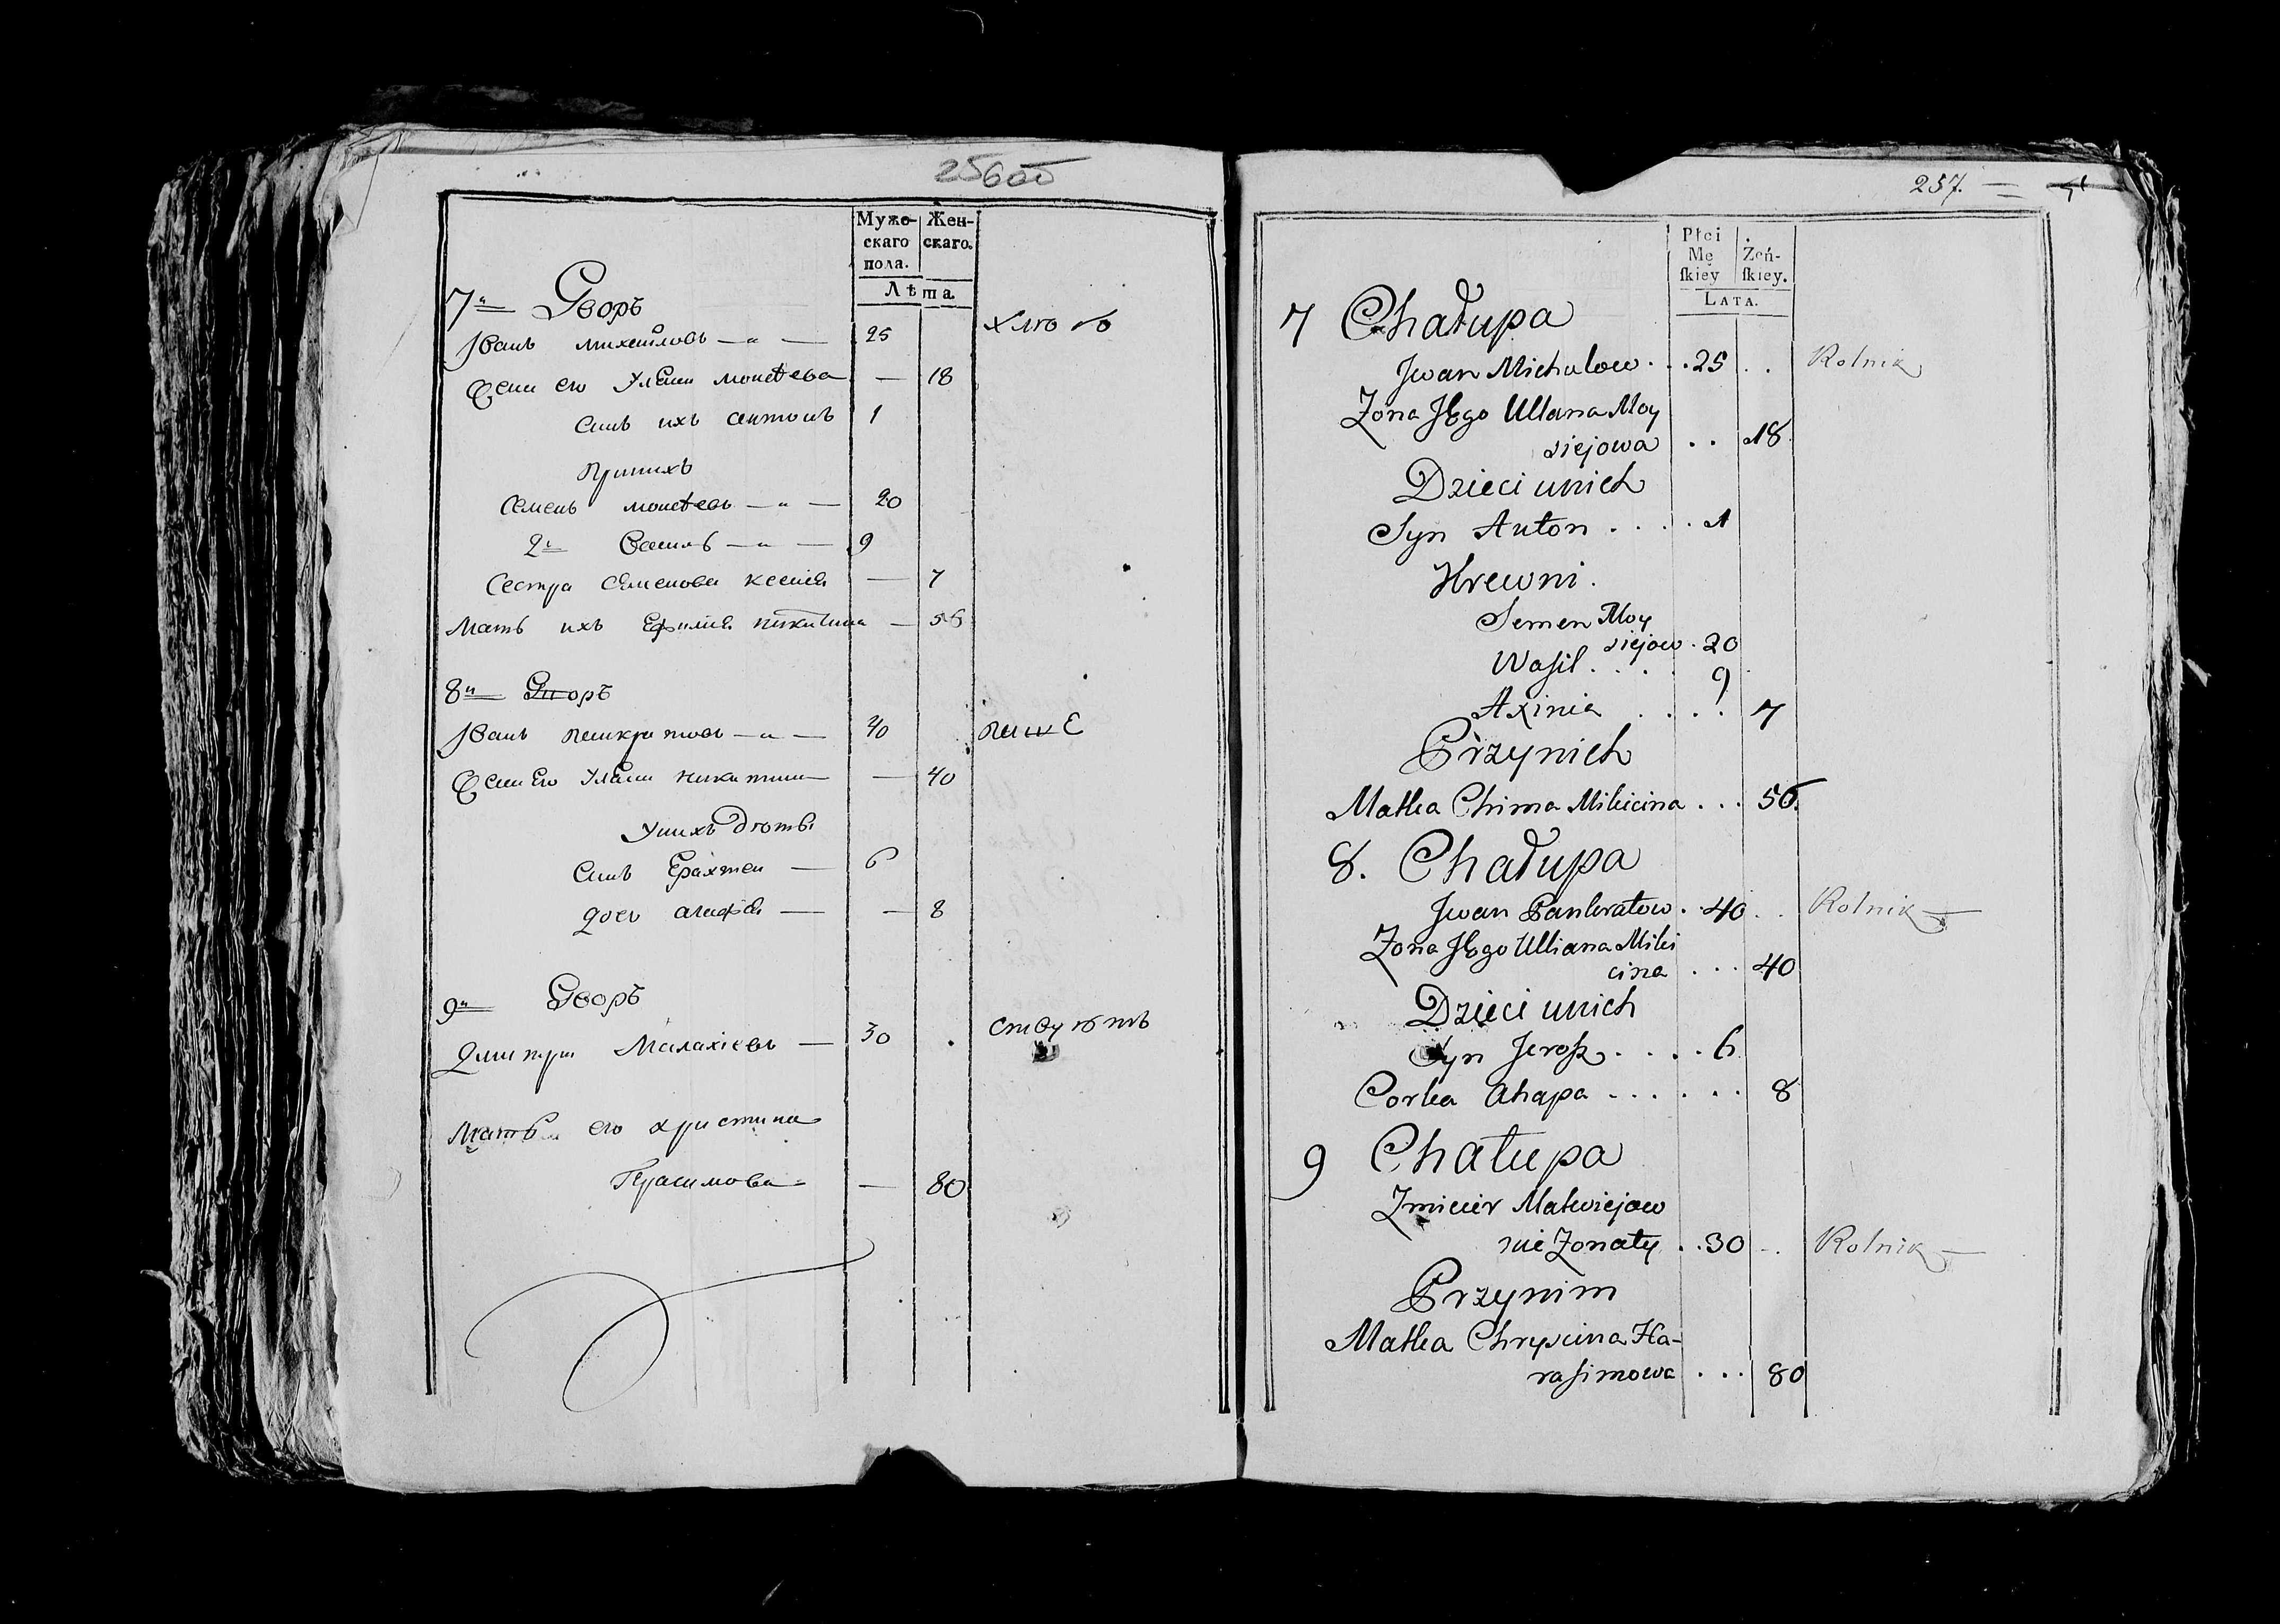 256об
Мужескаго пола. Женскаго.
Лѣта
7й Дворъ
Иванъ михайловъ — " — 25
Жена его Улана моисеева — 18
Сынъ ихъ антонъ 1
При нихъ
Семенъ моисеевъ — " — 20
2й Василь — " — 9
Сестра Семенова ксения — 7
Мать ихъ никитина — 56
8й Дворъ
Иванъ панкратовъ — " — 40 паш Е
Жена Его Улана никитина — 40
У нихъ дѣти
Сынъ — 6
дочь агафия — — 8
9й Дворъ
Дмитри Малахиевъ — 30
Мать его христина
Герасимова — 80
257.
Płci Męſkiey Żeńſkiey.
LATA.
7 Chałupa
Jwan Michałow . . . 25 . . Rolnik
Zona Jego Ullana Moy
siejowa . . 18
Dzieci unich
Syn Anton . . . . . 1
Krewni.
Semen Moy
siejow . 20
Waſil . . . . 9
Axinia . . . . 7
Przynich
Matka Chima Mikicina . . . 56.
8. Chałupa
Jwan Pankratow . . 40 . . Rolnik —
Zona Jego Ulliana Miki
cina . . . 40
Dzieci unich
Syn . . . . . 6
Corka Ahapa . . . . . . 8
9 Chałupa
Zmicier Matwiejow
nie Zonaty . . 30 . . Rolnik —
Przynim
Matka Chryscina Ha-
raſimowa . . . 80